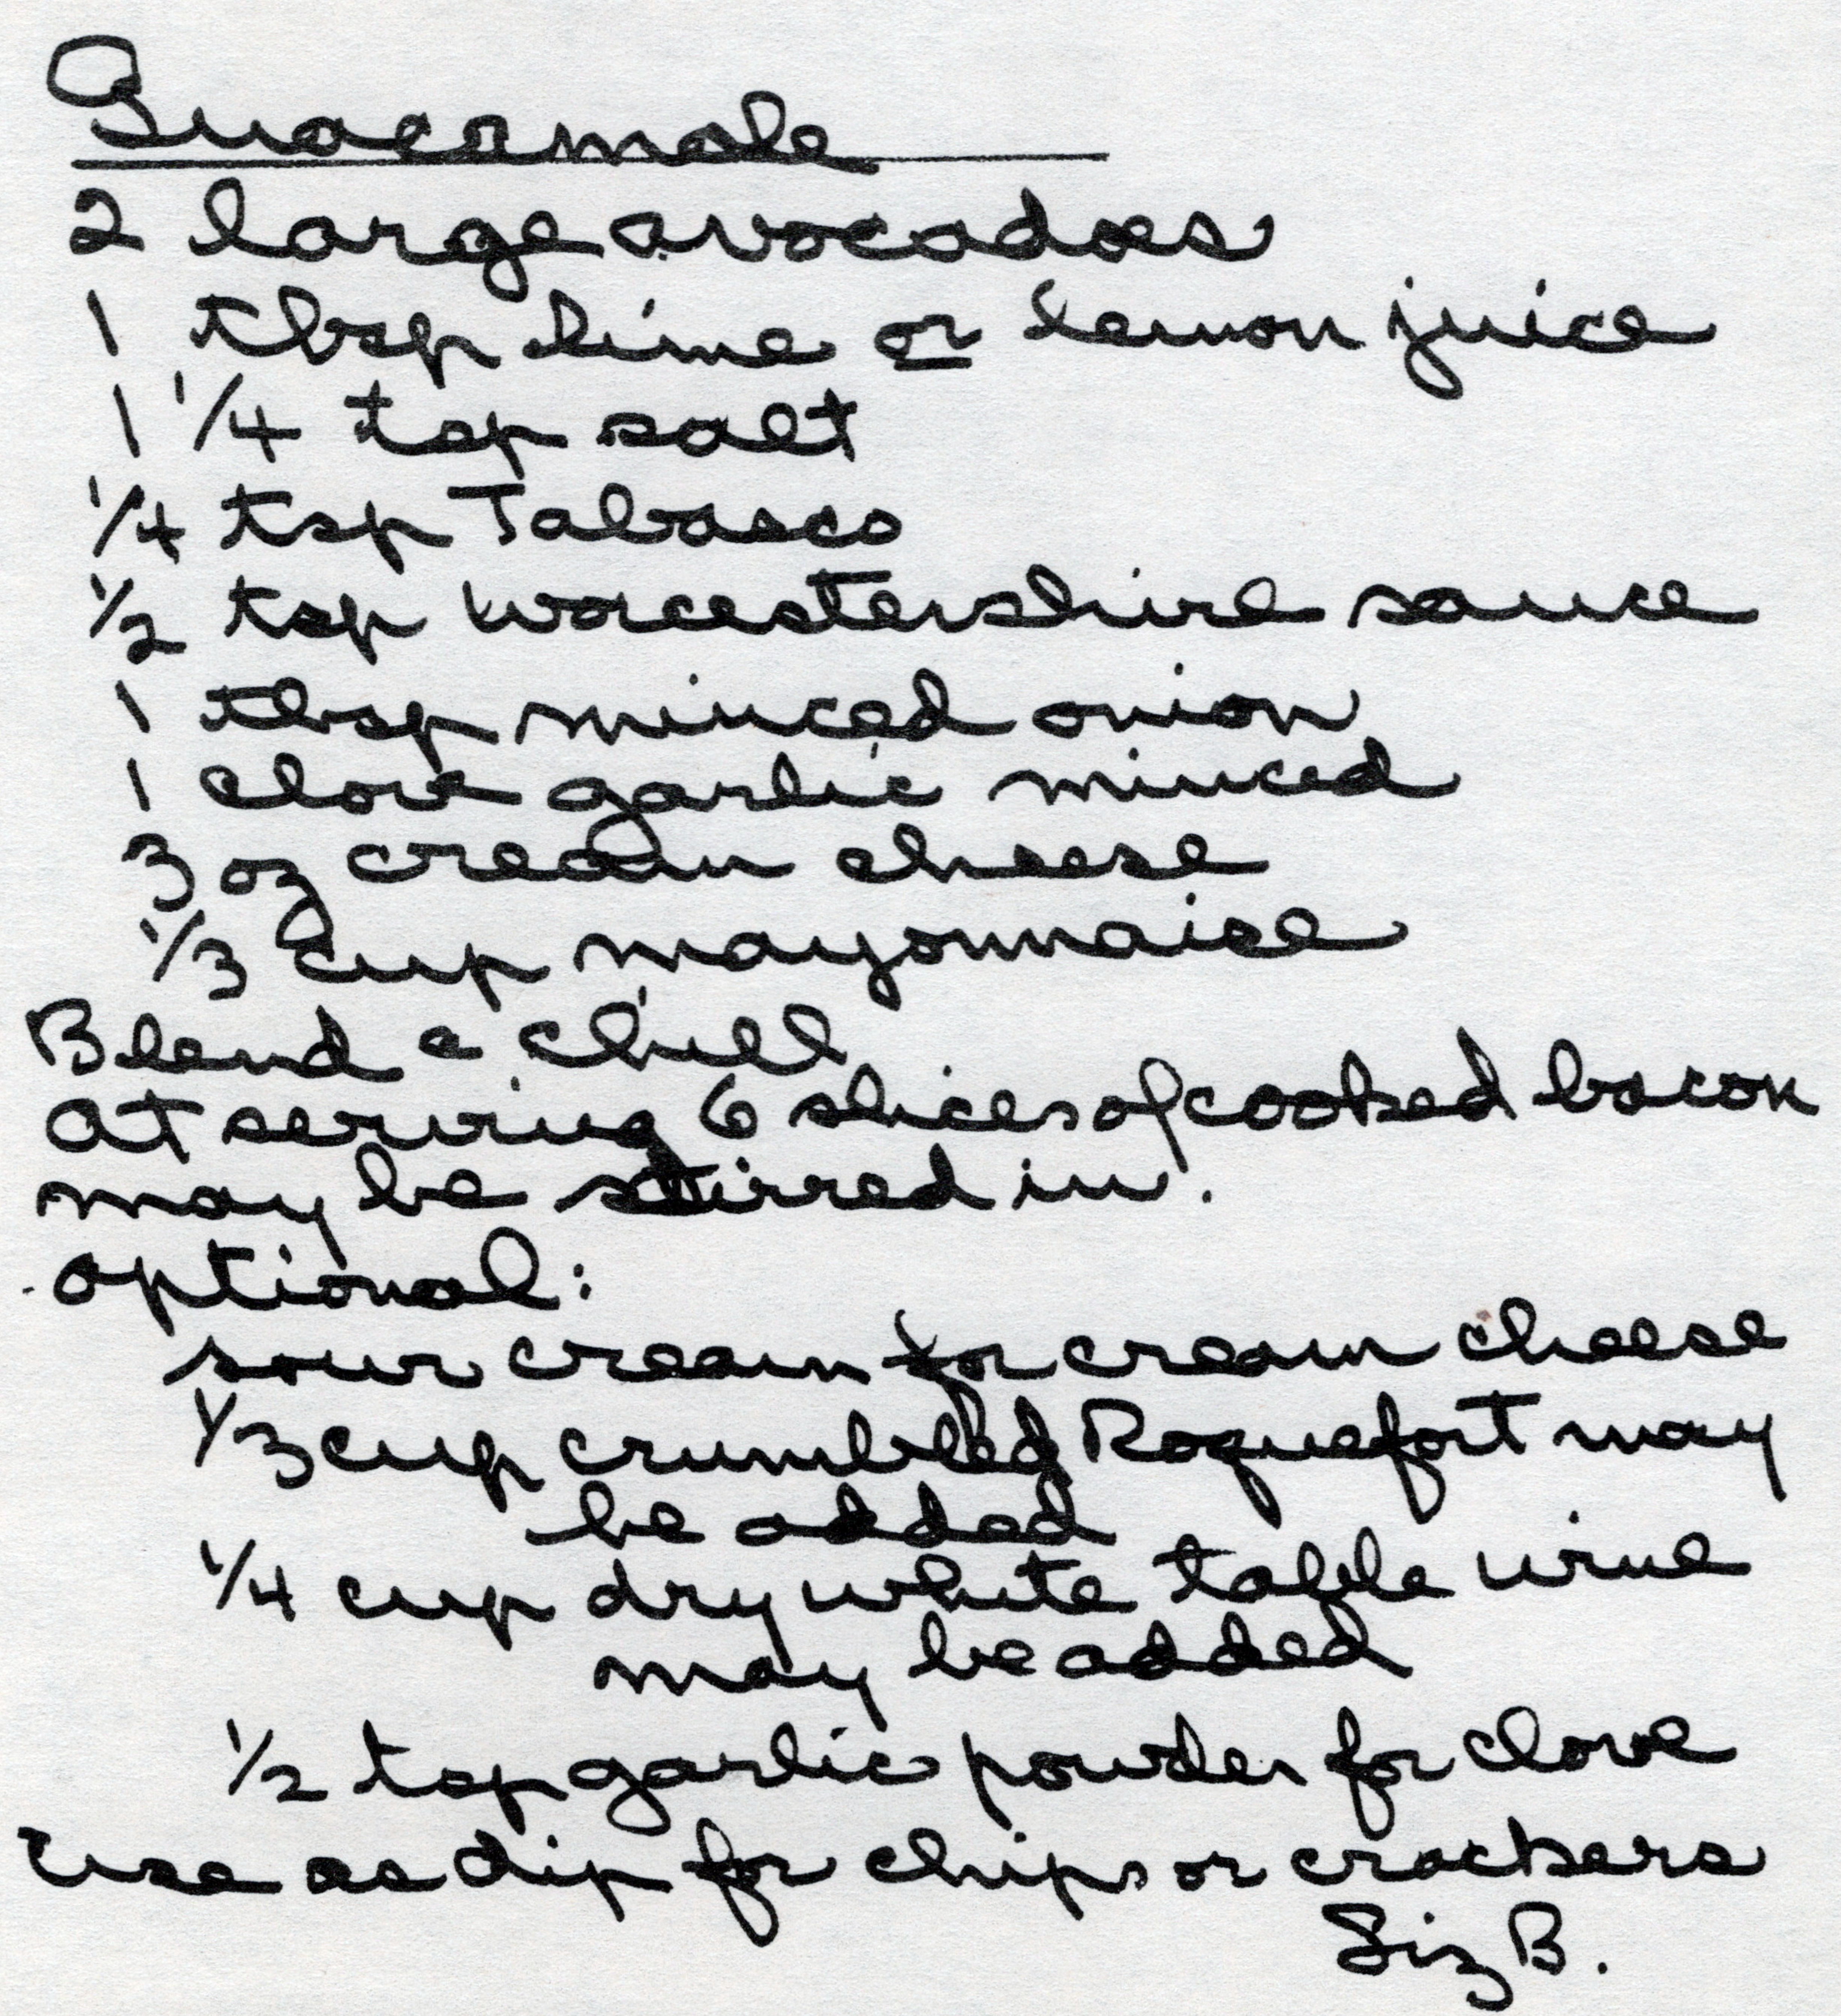 Guacamole
2 large avocadoes
1 tbsp lime or lemon juice
1 1/4 tsp salt
1/4 tsp Tabasco
1/2 tsp Worcestershire sauce
1 tbsp minced onion
1 clove garlic minced
3 oz cream cheese
1/3 cup mayonnaise
Blend & chill
At serving 6 slices of cooked bacon
may be stirred in.
Optional:
sour cream for cream cheese
1/3 cup crumbled Roquefort may
be added
1/4 cup dry white table wine
may be added
1/2 tsp garlic powder for clove
Use as dip for chips or crackers
Liz B.